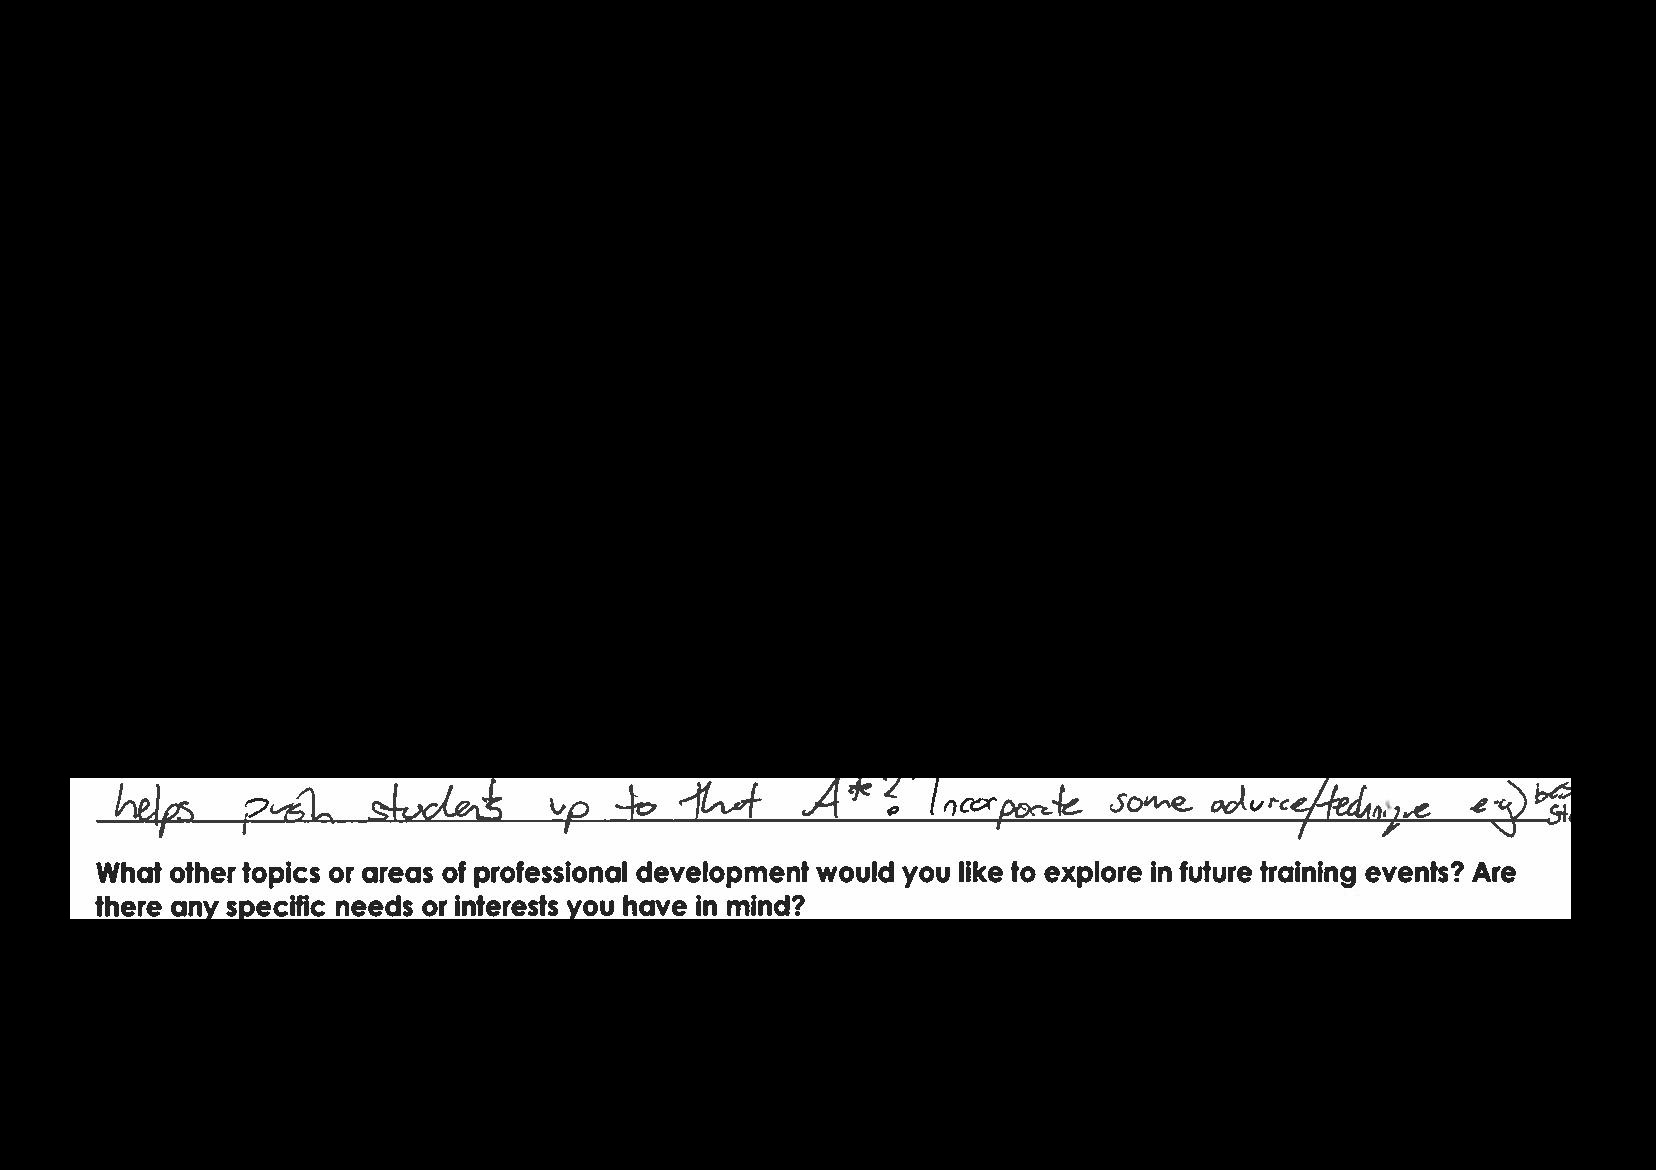 helps push students up to that A*? Incorporate some advice/technique eg)
What other topics or areas of professional development would you like to explore in future training events? Are
there any specific needs or interests you have in mind?